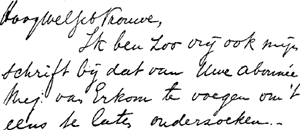 Hoogwelgeb Vrouwe,
Ik ben zoo vrij ook mijn
schrift bij dat van Uwe abonnée
Mej. van Erkom te voegen om 't
eens te laten onderzoeken.